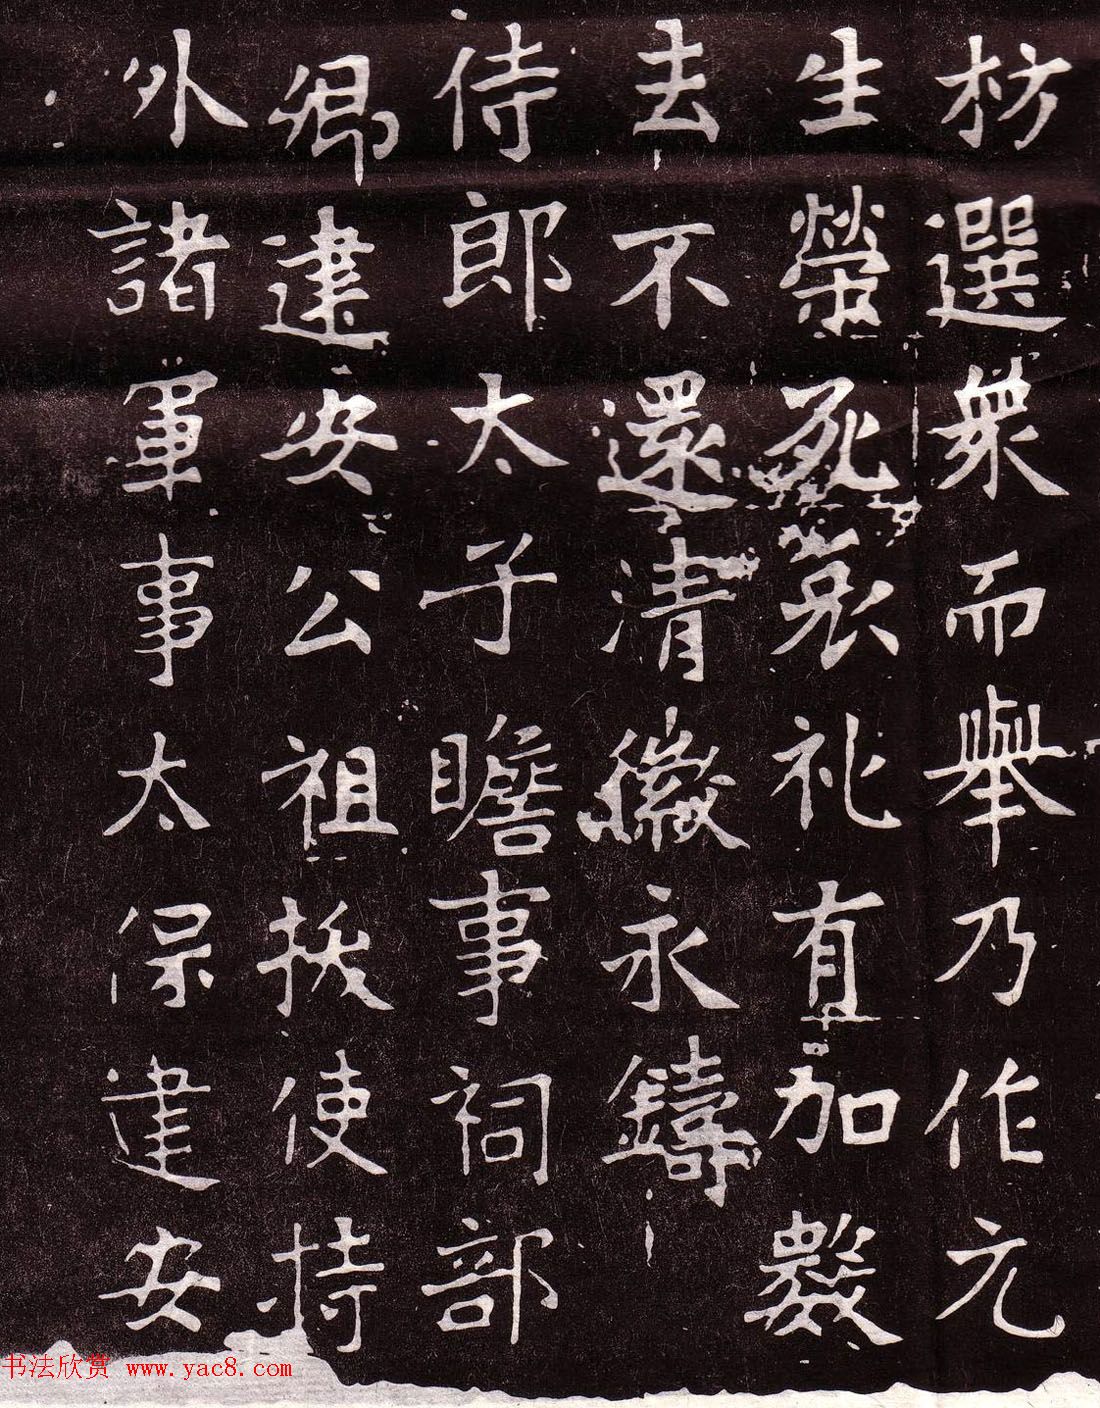 材選衆而舉乃作元
生榮死哀礼有加數
去不還清徽永鑄
侍郎太子瞻事祠部
卿建安公祖扶使持
外諸軍事太保建安
书法欣赏 www.yac8.com